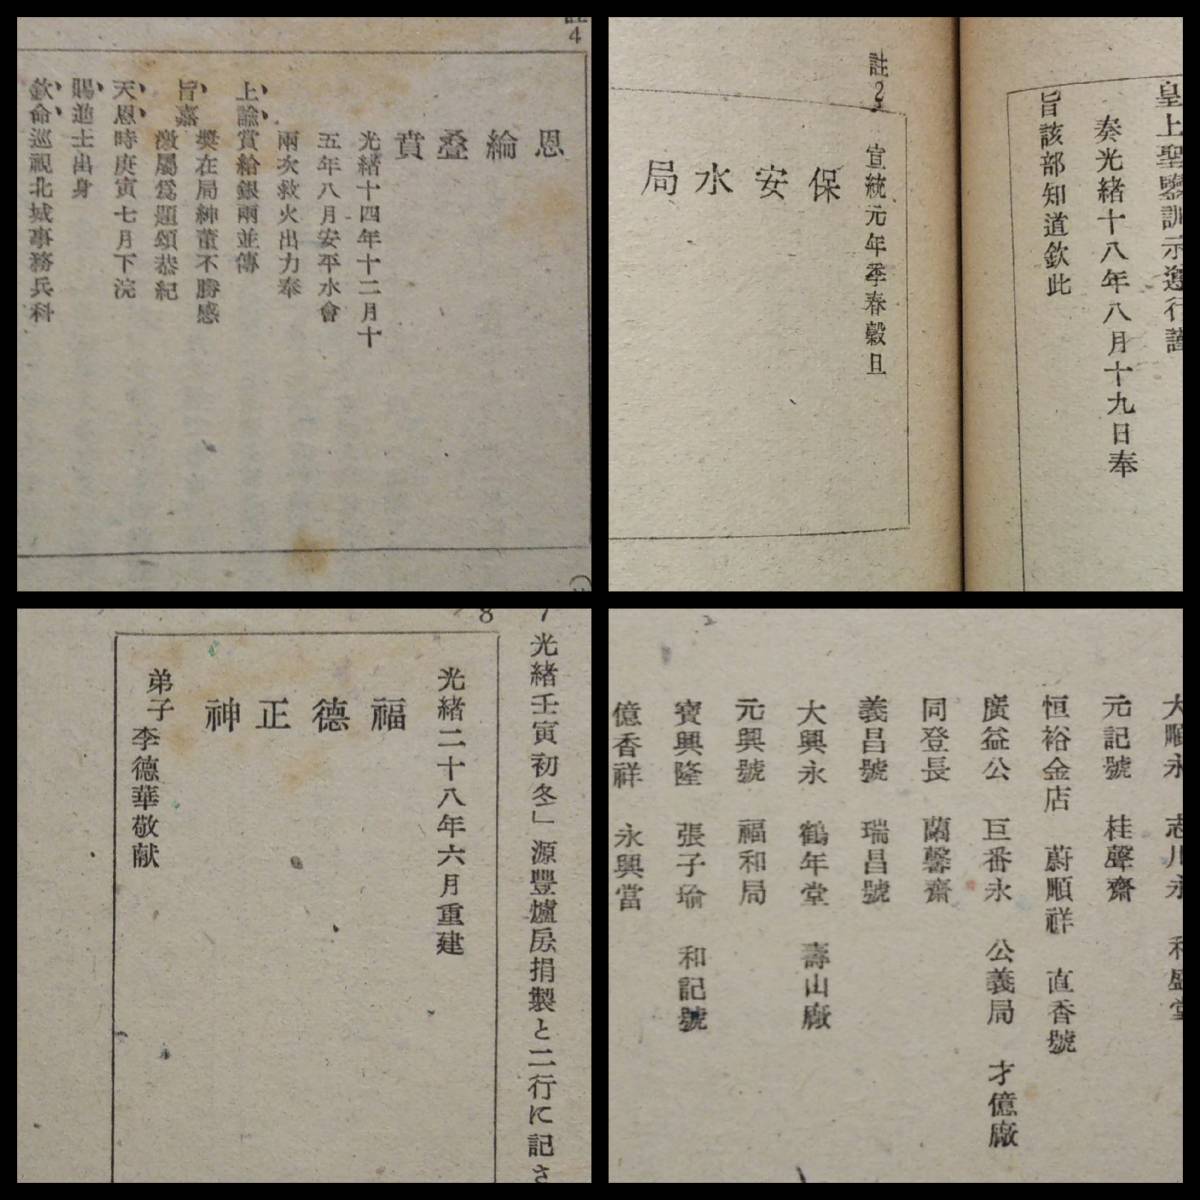 4
恩綸疊賁
光緒十四年十二月十
五年八月安平水會
兩次救火出力奉
上諭賞給銀兩並傳
旨嘉
奬在局紳董不勝感
激屬爲題頌恭紀
天恩時庚寅七月下浣
賜進士出身
欽命巡視北城事務兵科
皇上聖鑒訓示遵行謹
奏光緒十八年八月十九日奉
旨該部知道欽此
註2
宣統元年季春穀旦
保安水局
7
光緒壬寅初冬」源豐爐房捐製と二行に記さ
8
光緒二十八年六月重建
福德正神
弟子
李德華敬献
大順永 志川永 和盛堂
元記號 桂馨齋
恒裕金店 蔚順祥 直香號
廣益公 巨番永 公義局 才億廠
同登長 蘭馨齋
義昌號 瑞昌號
大興永 鶴年堂 壽山廠
元興號 福和局
寶興隆 張子瑜 和記號
億香祥 永興當